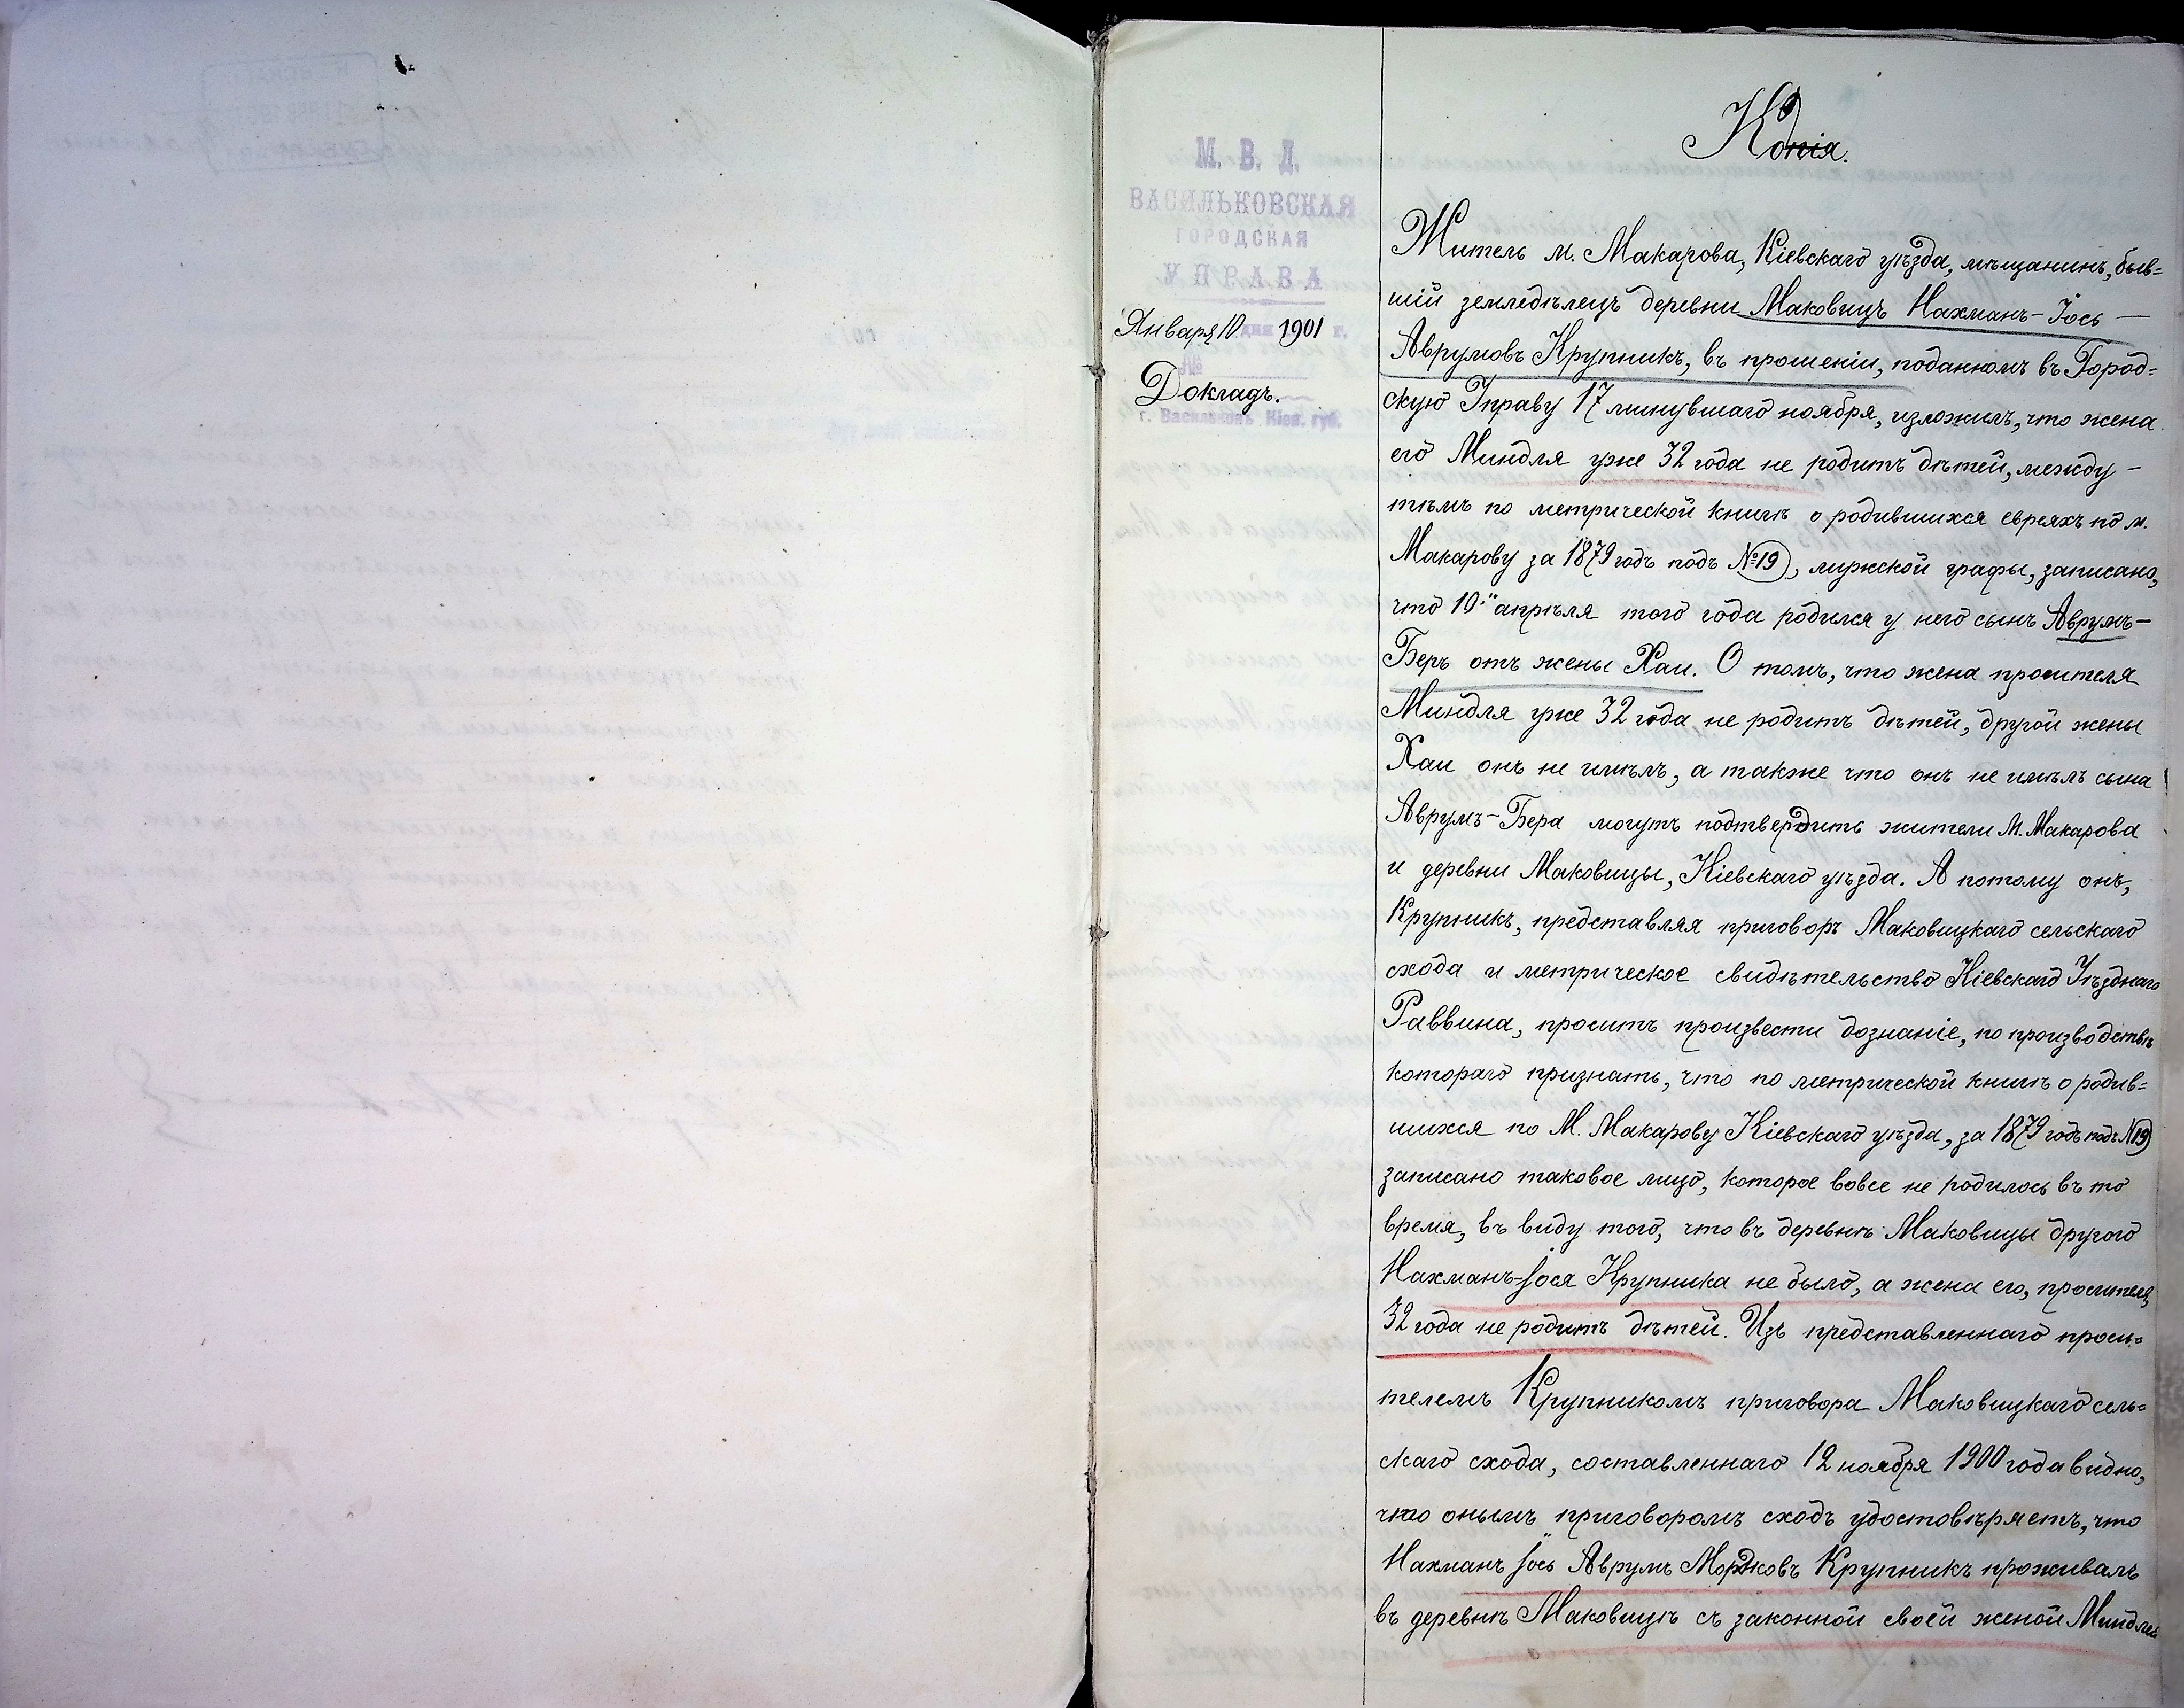 Копія.
М. В. Д.
ВАСИЛЬКОВСКАЯ
ГОРОДСКАЯ
УПРАВА
Января 10 дня 1901 г.
№
Докладъ.
г. Васильковъ, Кіев. губ.
Житель м. Макарова, Кіевскаго уѣзда, мѣщанинъ, быв=
шій земледѣлецъ деревни Маковицъ Нахманъ-Іось —
Аврумовъ Крупникъ, въ прошеніи, поданномъ въ Город=
скую Управу 17 минувшаго ноября, изложилъ, что жена
его Миндля уже 32 года не родитъ дѣтей, между-
тѣмъ по метрической книгѣ о родившихся евреяхъ по м.
Макарову за 1879 годъ подъ №19, мужской графы, записано,
что 10го апрѣля того года родился у него сынъ Аврумъ-
Беръ отъ жены Хаи. О томъ, что жена просителя
Миндля уже 32 года не родитъ дѣтей, другой жены
Хаи онъ не имѣлъ, а также что онъ не имѣлъ сына
Аврумъ-Бера могутъ подтвердить жители М. Макарова
и деревни Маковицы, Кіевскаго уѣзда. А потому онъ,
Крупникъ, представляя приговоръ Маковицкаго сельскаго
схода и метрическое свидѣтельство Кіевскаго Уѣзднаго
Раввина, проситъ произвести дознаніе, по производствѣ
котораго признать, что по метрической книгѣ о родив=
шихся по М. Макарову Кіевскаго уѣзда, за 1879 годъ подъ №19
записано таковое лицо, которое вовсе не родилось въ то
время, въ виду того, что въ деревнѣ Маковицы другого
Нахманъ-Іося Крупника не было, а жена его, просителя,
32 года не родитъ дѣтей. Изъ представленнаго проси=
телемъ Крупникомъ приговора Маковицкаго сель=
скаго схода, составленнаго 12 ноября 1900 года видно,
что онымъ приговоромъ сходъ удостовѣряетъ, что
Нахманъ Іось Аврумъ Мордковъ Крупникъ проживалъ
въ деревнѣ Маковицѣ съ законной своей женой Миндлей